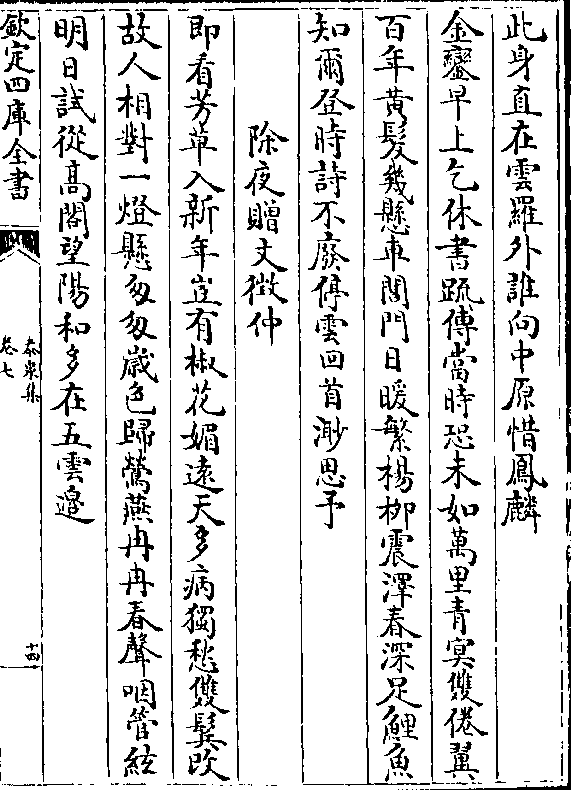 此身直在雲羅外誰向中原惜鳳麟
金鑾早上乞休書疏傅當時恐未如萬里青㝠雙倦翼
百年黃髮幾懸車閶門日暖繁楊栁震澤春深足鯉魚
知爾登時詩不廢停雲回首渺思予
除夜贈文徴仲
即看芳草入新年豈有椒花媚遠天多病獨愁雙鬂改
故人相對一燈懸匆匆歳色歸鶯燕冉冉春聲咽管絃
明日試從髙閣望陽和多在五雲邉
欽定四庫全書
泰泉集
卷七
十四